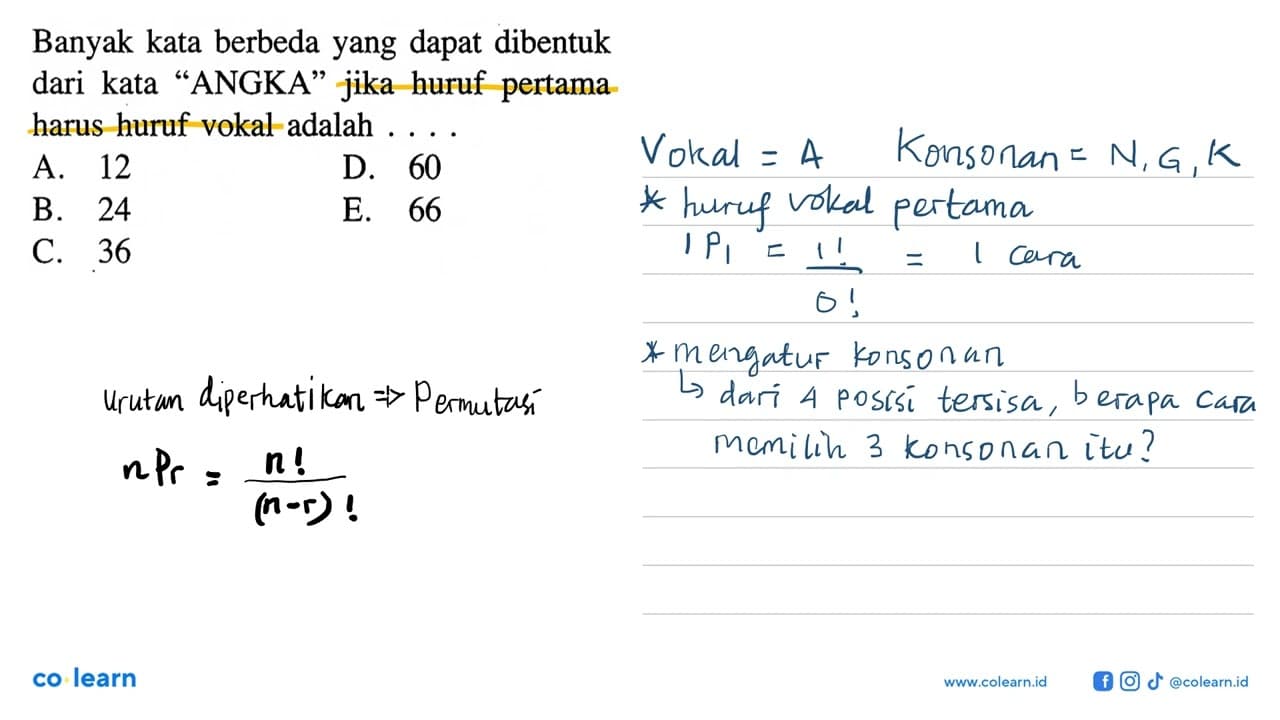 Banyak kata berbeda yang dapat dibentuk
dari kata “ANGKA” jika huruf pertama
harus huruf vokal adalah . . . .
A. 12
B. 24
C. 36
D. 60
E. 66
urutan diperhatikan => Permutasi
nPr = n! / (n-r)!
Vokal = A Konsonan = N, G, K
* huruf vokal pertama
1P1 = 1! / 0! = 1 cara
* mengatur konsonan
↳ dari 4 posisi tersisa, berapa cara
memilih 3 konsonan itu?
co learn
www.colearn.id
@colearn.id